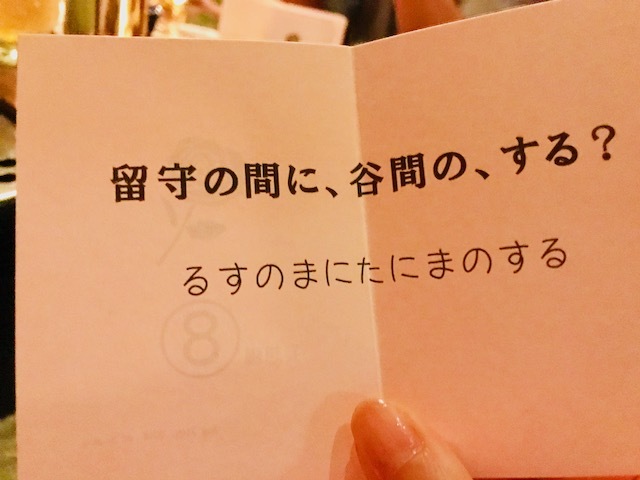 留守の間に、谷間の、する？
るすのまにたにまのする
8